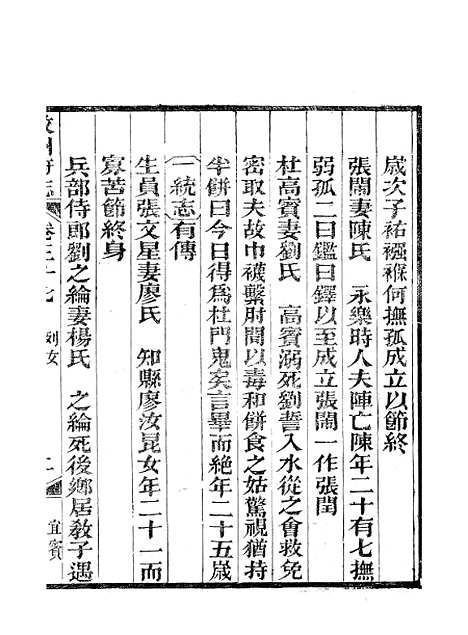 歲次子祐襁褓何撫孤成立以節終
張鬧妻陳氏　永樂時人夫陣亡陳年二十有七撫
弱孤二曰鑑曰鐸以至成立張鬧一作張閏
杜高賓妻劉氏　高賓溺死劉誓入水從之會救免
密取夫故巾襪繫肘間以毒和餅食之姑驚視猶持
半餅曰今日得爲杜門鬼矣言畢而絕年二十五歲
一統志有傳
生員張文星妻廖氏　知縣廖汝昆女年二十一而
寡苦節終身
兵部侍郎劉之綸妻楊氏　之綸死後鄉居教子遇
州府志　卷三十七　列女　宜賓